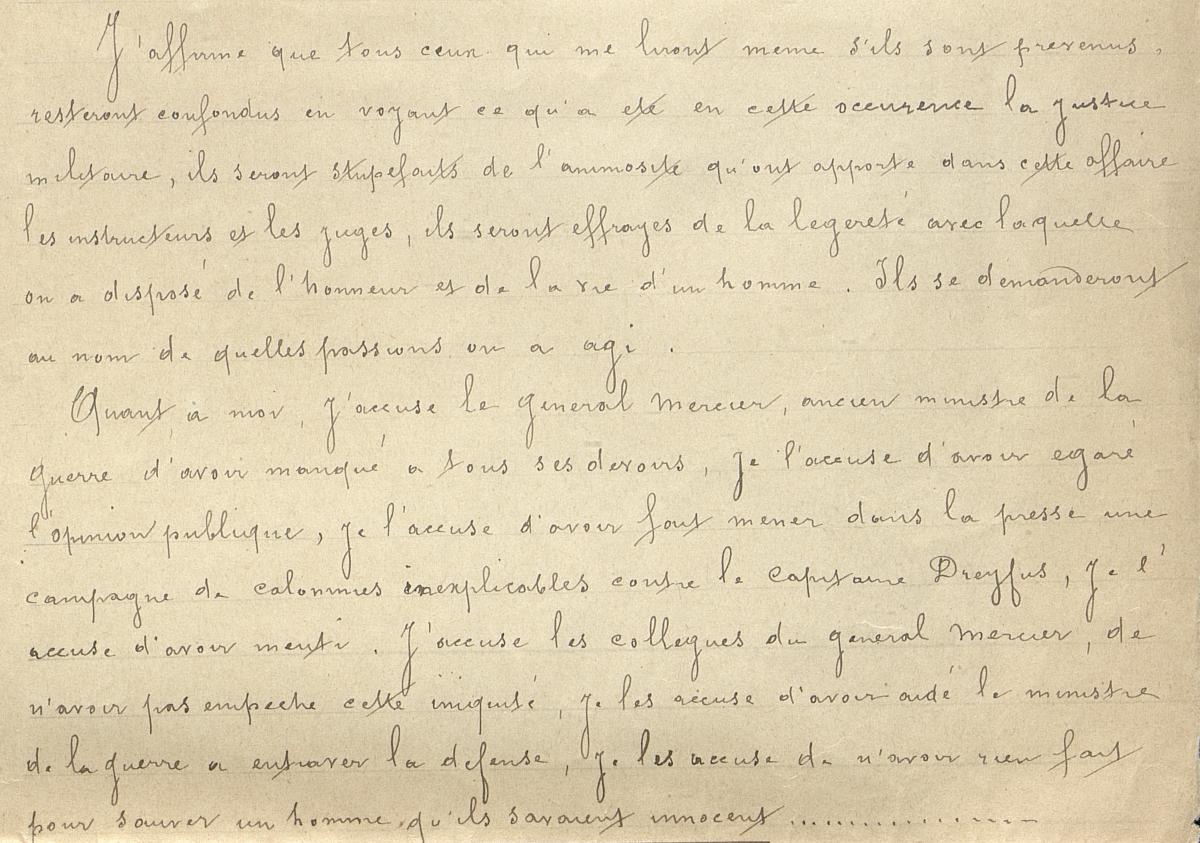 J'affirme que tous ceux qui me liront meme s'ils sont prevenus,
resteront confondus en voyant ce qu'a eté en cette occurence la justice
militaire, ils seront stupefaits de l'animosité qu'ont apporté dans cette affaire
les instructeurs et les juges, ils seront effrayes de la legereté avec laquelle
on a disposé de l'honneur et de la vie d'un homme. Ils se demanderont
au nom de quelles passions on a agi.
Quant a moi, j'accuse le general Mercier, ancien ministre de la
guerre d'avoir manqué a tous ses devoirs, je l'accuse d'avoir egaré
l'opinion publique, je l'accuse d'avoir fait mener dans la presse une
campagne de calomnies inexplicables contre le capitaine Dreyfus, je l'
accuse d'avoir menti. J'accuse les collegues du general Mercier, de
n'avoir pas empeche cette iniquité, je les accuse d'avoir aidé le ministre
de la guerre a entraver la defense, je les accuse de n'avoir rien fait
pour sauver un homme qu'ils savaient innocent ................